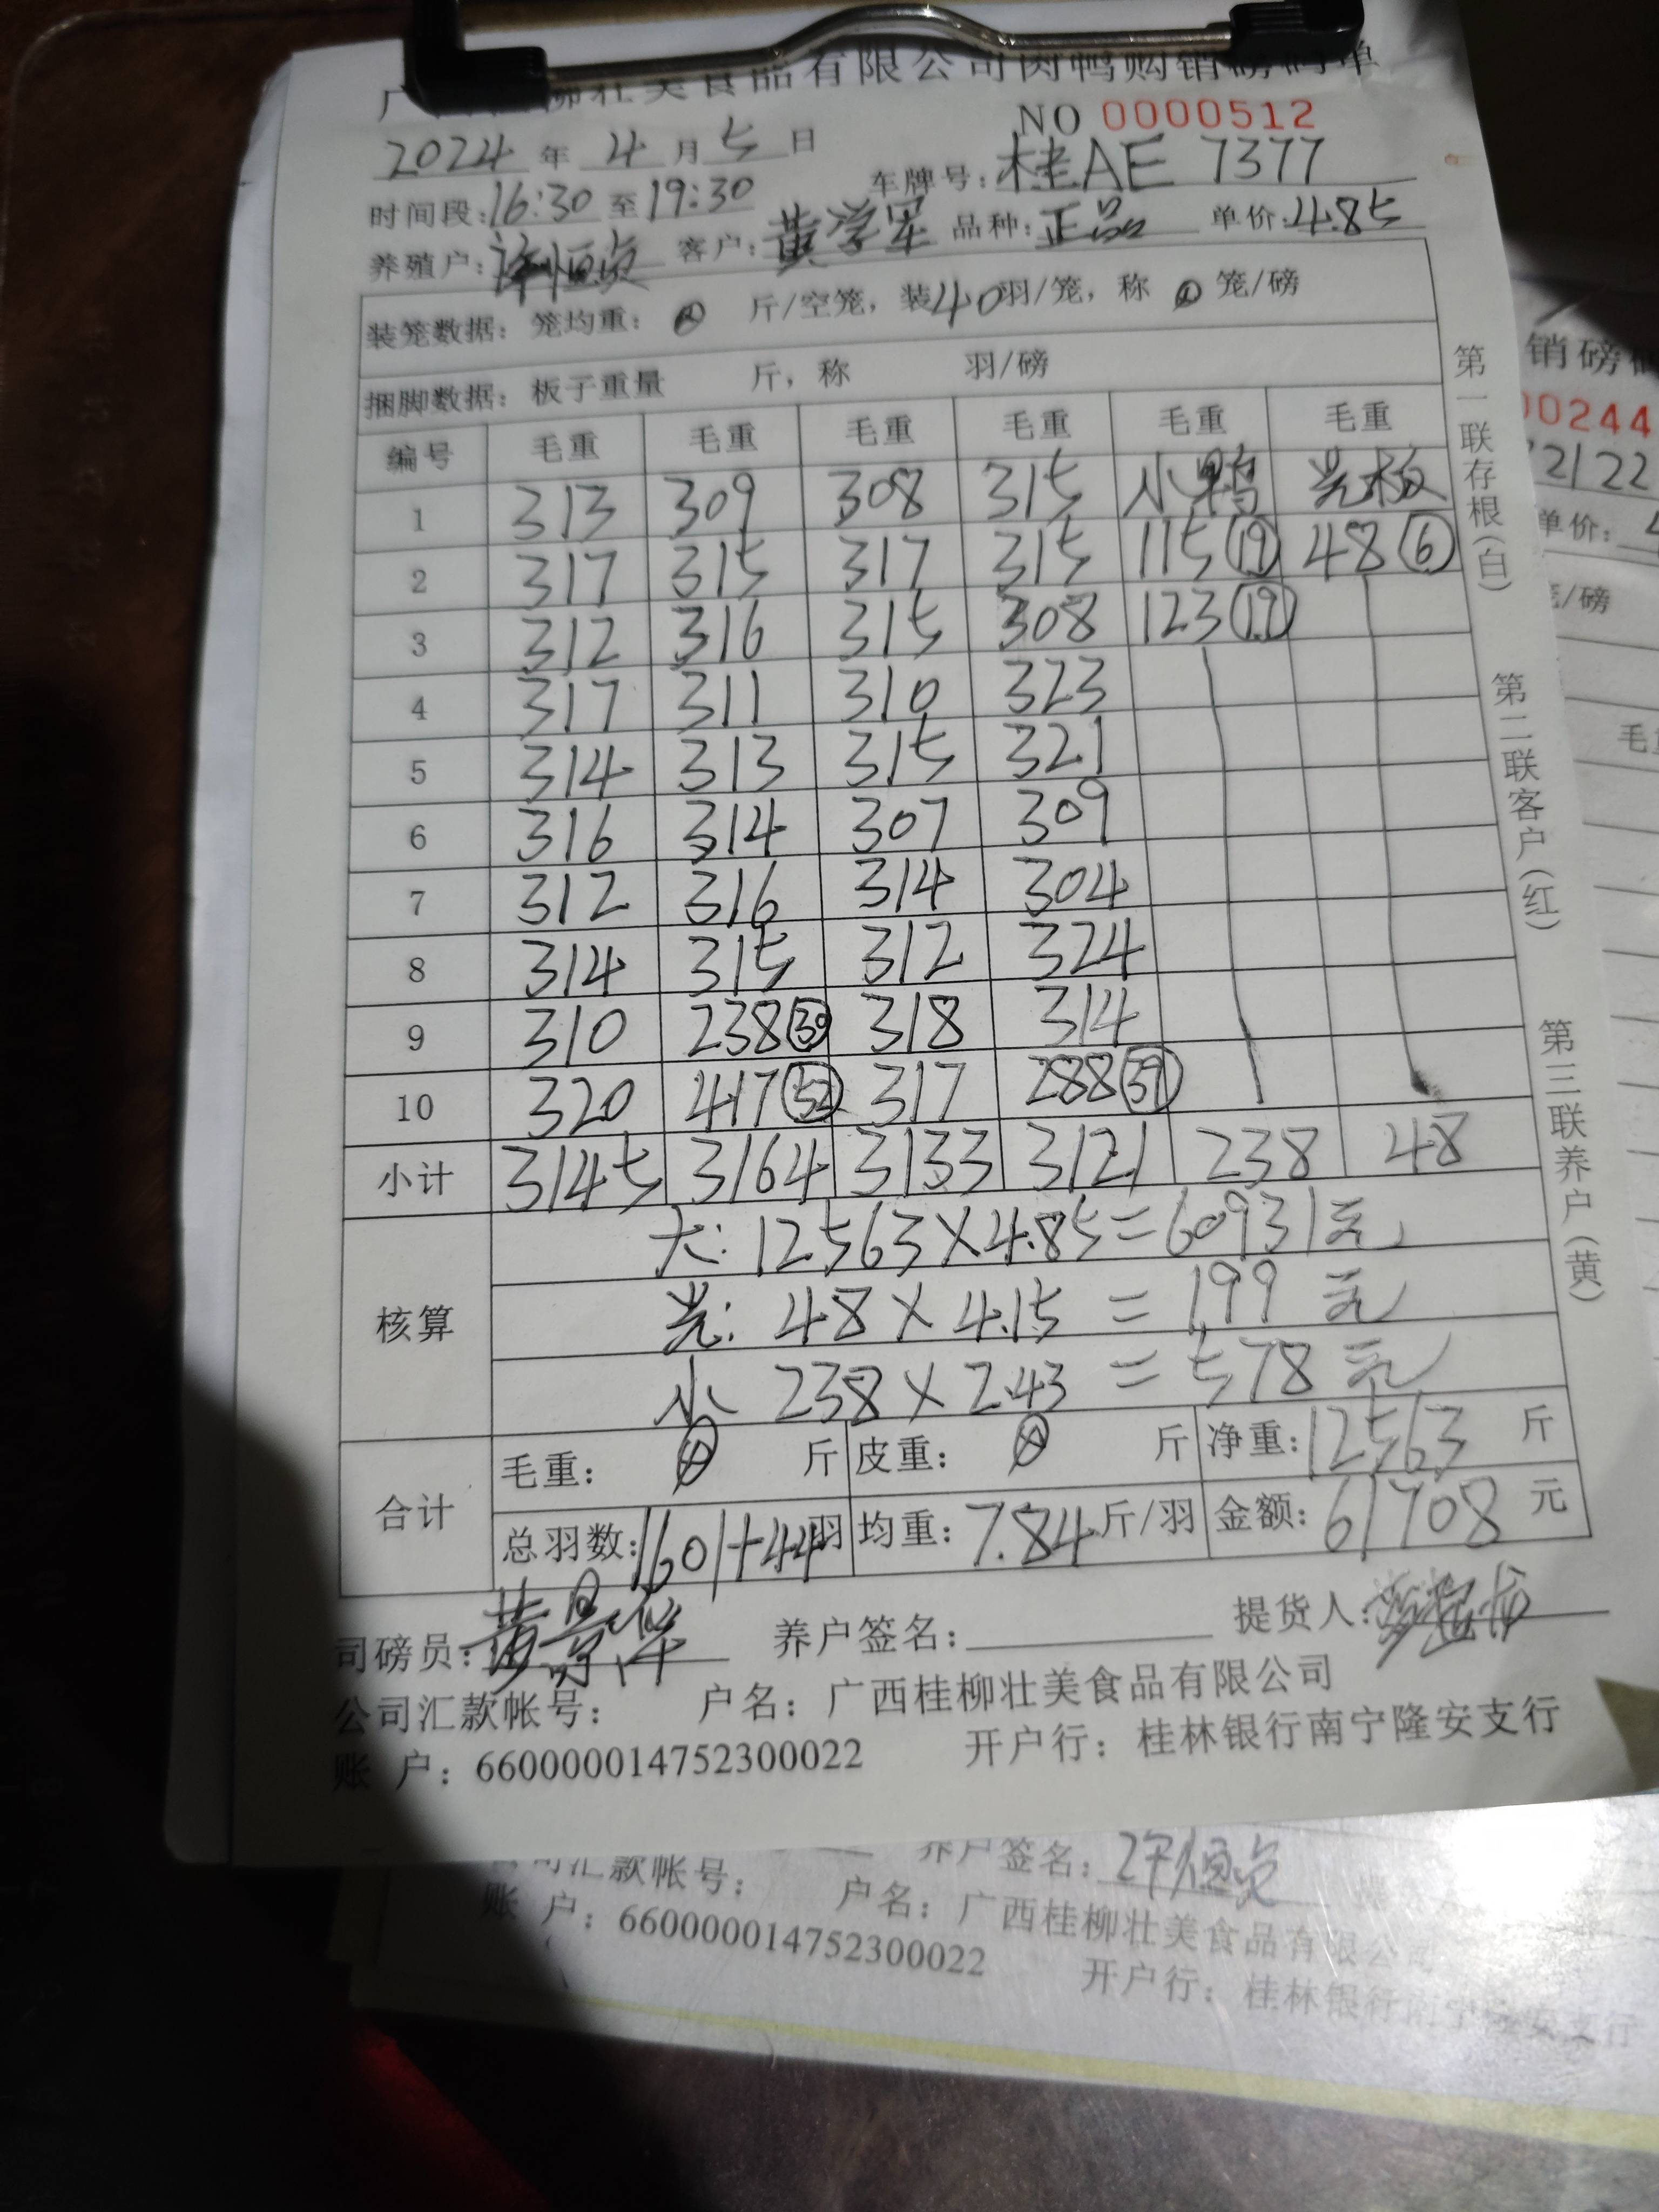 美食品有限公司肉鸭购销磅码单
NO 0000512
2024 年 4 月 5 日
车牌号:桂AE 7377
时间段:16:30 至 19:30
养殖户:许恒贞 客户:黄学军 品种:正品 单价:4.85
装笼数据: 笼均重: 斤/空笼, 装40羽/笼, 称 笼/磅
捆脚数据: 板子重量 斤, 称 羽/磅
编号 毛重 毛重 毛重 毛重 毛重 毛重
1 313 309 308 315 小鸭 光板
2 317 315 317 315 115(19) 48(6)
3 312 316 315 308 123(19)
4 317 311 310 323
5 314 313 315 321
6 316 314 307 309
7 312 316 314 304
8 314 315 312 324
9 310 238(30) 318 314
10 320 417(52) 317 288(37)
小计 3145 3164 3133 3121 238 48
核算
大: 12563×4.85=60931元
光: 48×4.15=199元
小 238×2.43=578元
合计
毛重: 斤 皮重: 斤 净重:12563 斤
总羽数:1601+44羽 均重:7.84斤/羽 金额:61708 元
司磅员:黄景华 养户签名: 提货人:
公司汇款帐号: 户名: 广西桂柳壮美食品有限公司
账 户: 660000014752300022 开户行: 桂林银行南宁隆安支行
第一联存根(白)
第二联客户(红)
第三联养户(黄)
销磅
00244
2122
单价: 4
/磅
养户签名:许恒贞
司汇款帐号: 户名: 广西桂柳壮美食品有限公司
账 户: 660000014752300022 开户行: 桂林银行南宁隆安支行